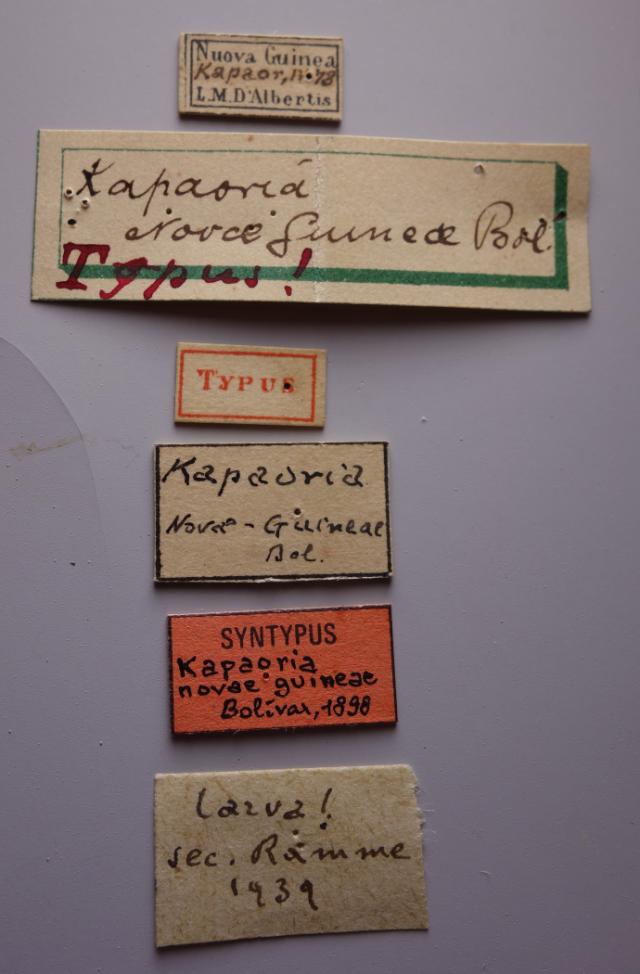 Nuova Guinea
Kapaor, n. 78
L.M.D'Albertis
Kapaoria
Novæ Guineæ Bol.
Typus!
TYPUS
Kapaoria
Novæ-Guineae
Bol.
SYNTYPUS
Kapaoria
novae guineae
Bolívar, 1898
larva!
sec. Ramme
1939